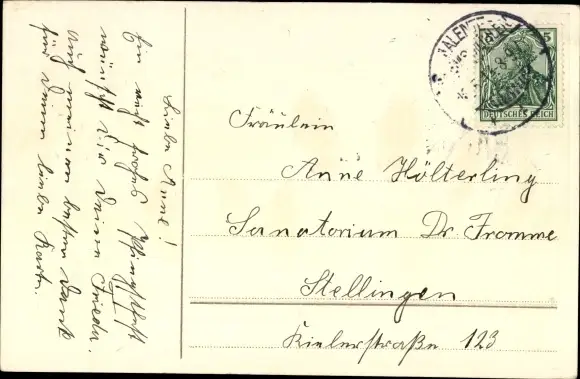 Liebe Anne!
Ein recht frohes Pfingstfest
wünscht Dir Deine Frieda.
Auch meinen besten Dank
für Deine liebe Karte.
5
DEUTSCHES REICH
Fräulein
Anne Hölterling
Sanatorium Dr. Fromme
Stellingen
Kielerstraße 123